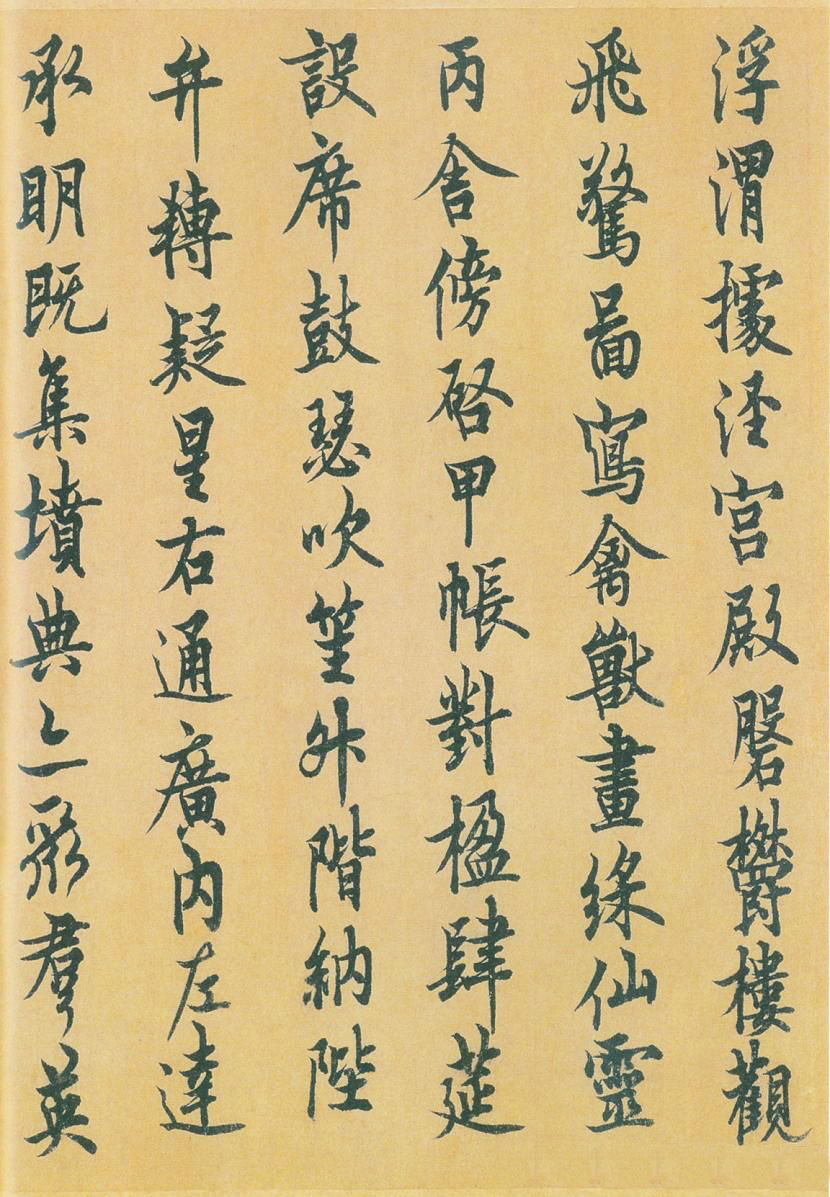 浮渭據涇宮殿磐欝樓觀
飛驚啚寫禽獸畫綵仙靈
丙舍傍啓甲帳對楹肆莚
設席鼓瑟吹笙升階納陛
弁轉疑星右通廣內左達
承明既集墳典亦聚羣英